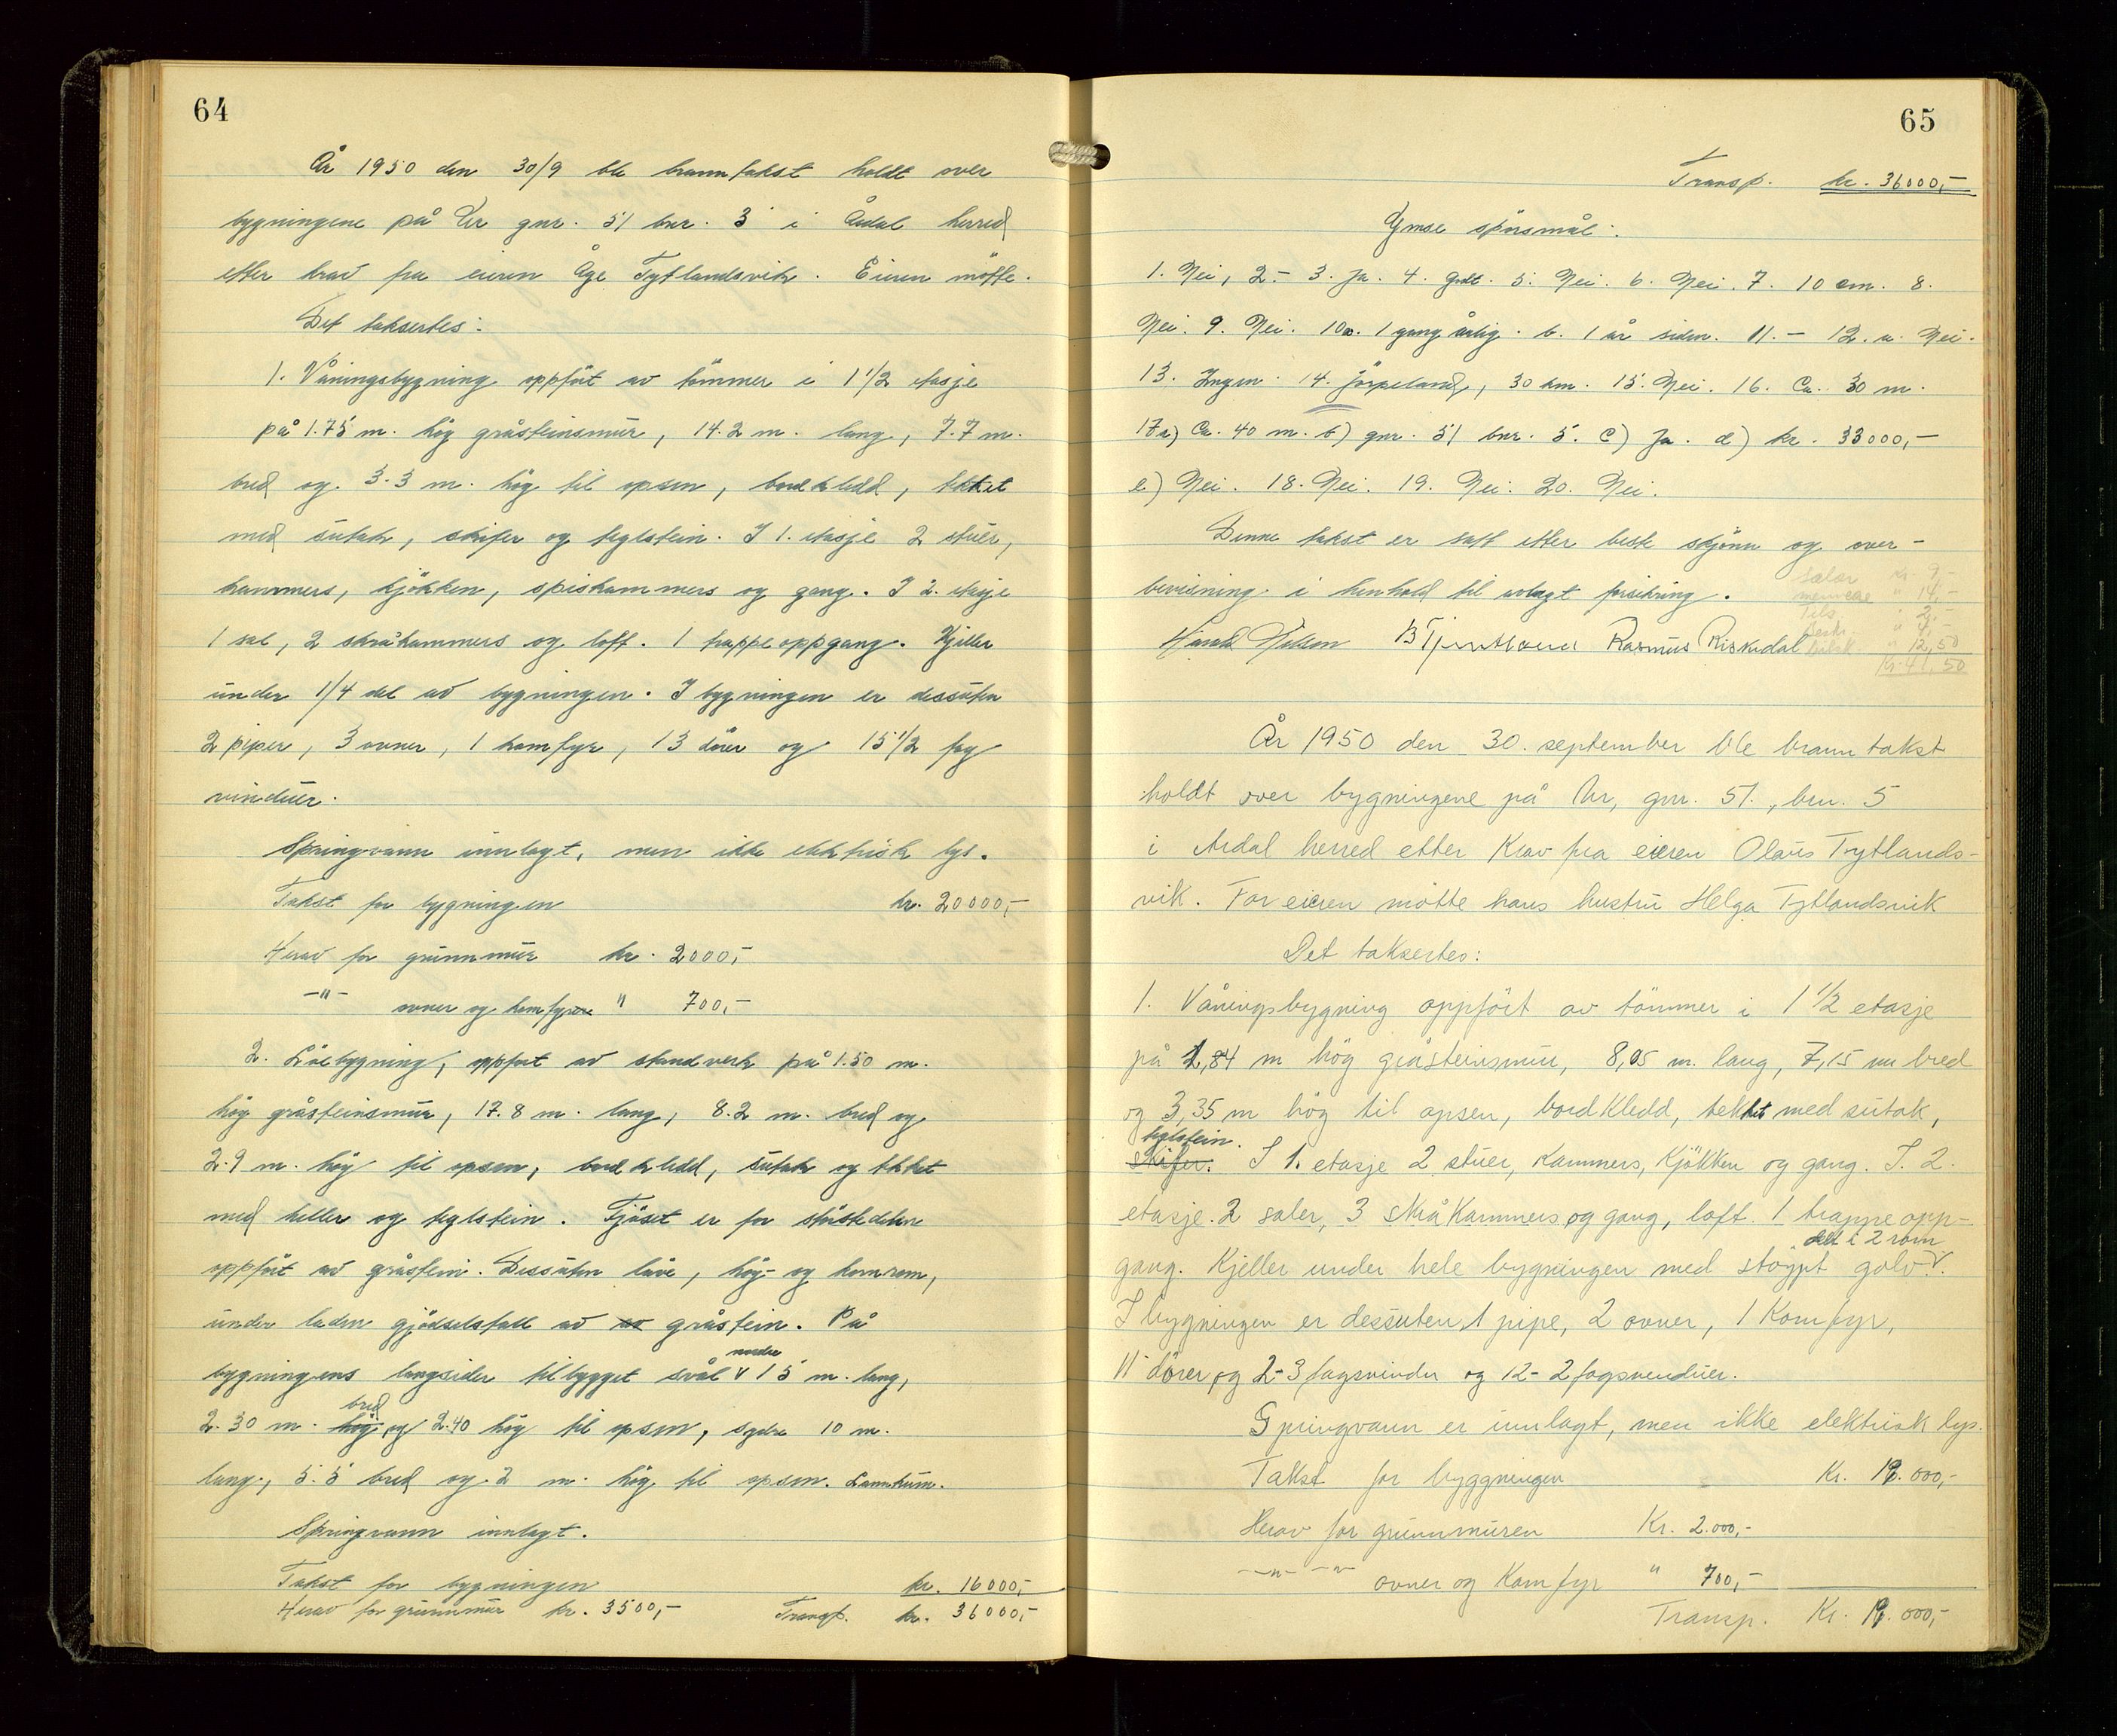 64
År 1950 den 30/9 ble branntakst holdt over
bygningene på Ur gnr. 51 bnr. 3 i Årdal herred
etter krav fra eieren Åge Tytlandsvik. Eieren møtte.
Det taksertes:
1. Våningsbygning oppført av tömmer i 1 1/2 etasje
på 1.75 m. hög gråsteinsmur, 14.2 m. lang, 7.7 m.
bred og 3.3 m. hög til opsen, bordkledd, tekket
med sutak, skifer og teglstein. I 1. etasje 2 stuer,
kammers, kjökken, spiskammers og gang. I 2. etasje
1 sal, 2 skråkammers og loft. 1 trappeoppgang. Kjeller
under 1/4 del av bygningen. I bygningen er dessuten
2 piper, 3 ovner, 1 komfyr, 13 dører og 15 1/2 fag
vinduer.
Springvann innlagt, men ikke elektrisk lys.
Takst for bygningen kr. 20000,-
Herav for grunnmur kr. 2000,-
-"- ovner og komfyrer " 700,-
2. Löebygning, oppført av standverk på 1.50 m.
hög gråsteinsmur, 17.8 m. lang, 8.2 m. bred og
2.9 m. hög til opsen, bordkledd, sutak og tekket
med heller og teglstein. Fjöset er for störstedelen
oppført av gråstein. Dessuten låve, höy- og kornrom,
under laden gjödselstall av av gråstein. På
bygningens langsider tilbygget sval v nordre 15 m. lang,
2.30 m. hög bred og 2.40 hög til opsen, sydre 10 m.
lang, 5.5 bred og 2 m. hög til opsen. Lannkum.
Springvann innlagt.
Takst for bygningen kr. 16000,-
Herav for grunnmur kr. 3500,- Transp. kr. 36000,-
65
Transp. kr. 36000,-
Ymse spörsmål:
1. Nei, 2.- 3. Ja. 4. Godt. 5. Nei. 6. Nei. 7. 10 cm. 8.
Nei. 9. Nei. 10a. 1 gang årlig. b. 1 år siden. 11.- 12. a. Nei.
13. Ingen. 14. Jörpeland, 30 km. 15. Nei. 16. Ca. 30 m.
17a) Ca. 40 m. b) gnr. 51 bnr. 5. c) Ja. d) kr. 33000,-
e) Nei. 18. Nei. 19. Nei. 20. Nei.
Denne takst er tatt etter beste skjönn og over-
bevisning i henhold til avlagt forsikring.
Rasmus Riskedal
Kr. 9,-
" 14,-
12,50
Kr. 41,50
År 1950 den 30. september ble branntakst
holdt over bygningene på Ur, gnr. 51., bnr. 5
i Årdal herred etter Krav fra eieren Olaus Tytlands-
vik. For eieren møtte hans hustru Helga Tytlandsvik
Det taksertes:
1. Våningsbygning oppfört av tömmer i 1 1/2 etasje
på 1,84 m hög gråsteinsmur, 8,05 m. lang, 7,15 m bred
og 3,35 m hög til opsen, bordkledd, tekket med sutak,
teglstein.
skifer. I 1. etasje 2 stuer, Kammers, Kjökken og gang. I. 2.
etasje. 2 saler, 3 skråkammers og gang, loft. 1 trappeopp-
delt i 2 rom
gang. Kjeller under hele bygningen med støypt golv v.
I bygningen er dessuten 1 pipe, 2 ovner, 1 Komfyr,
11 dörer og 2-3 fagsvindu og 12-2 fagsvenduer.
Springvann er innlagt, men ikke elektrisk lys.
Takst for byggningen Kr. 19.000,-
Herav for grunnmuren Kr. 2.000,-
-"- -"- ovner og Komfyr " 700,-
Transp. Kr. 19.000,-